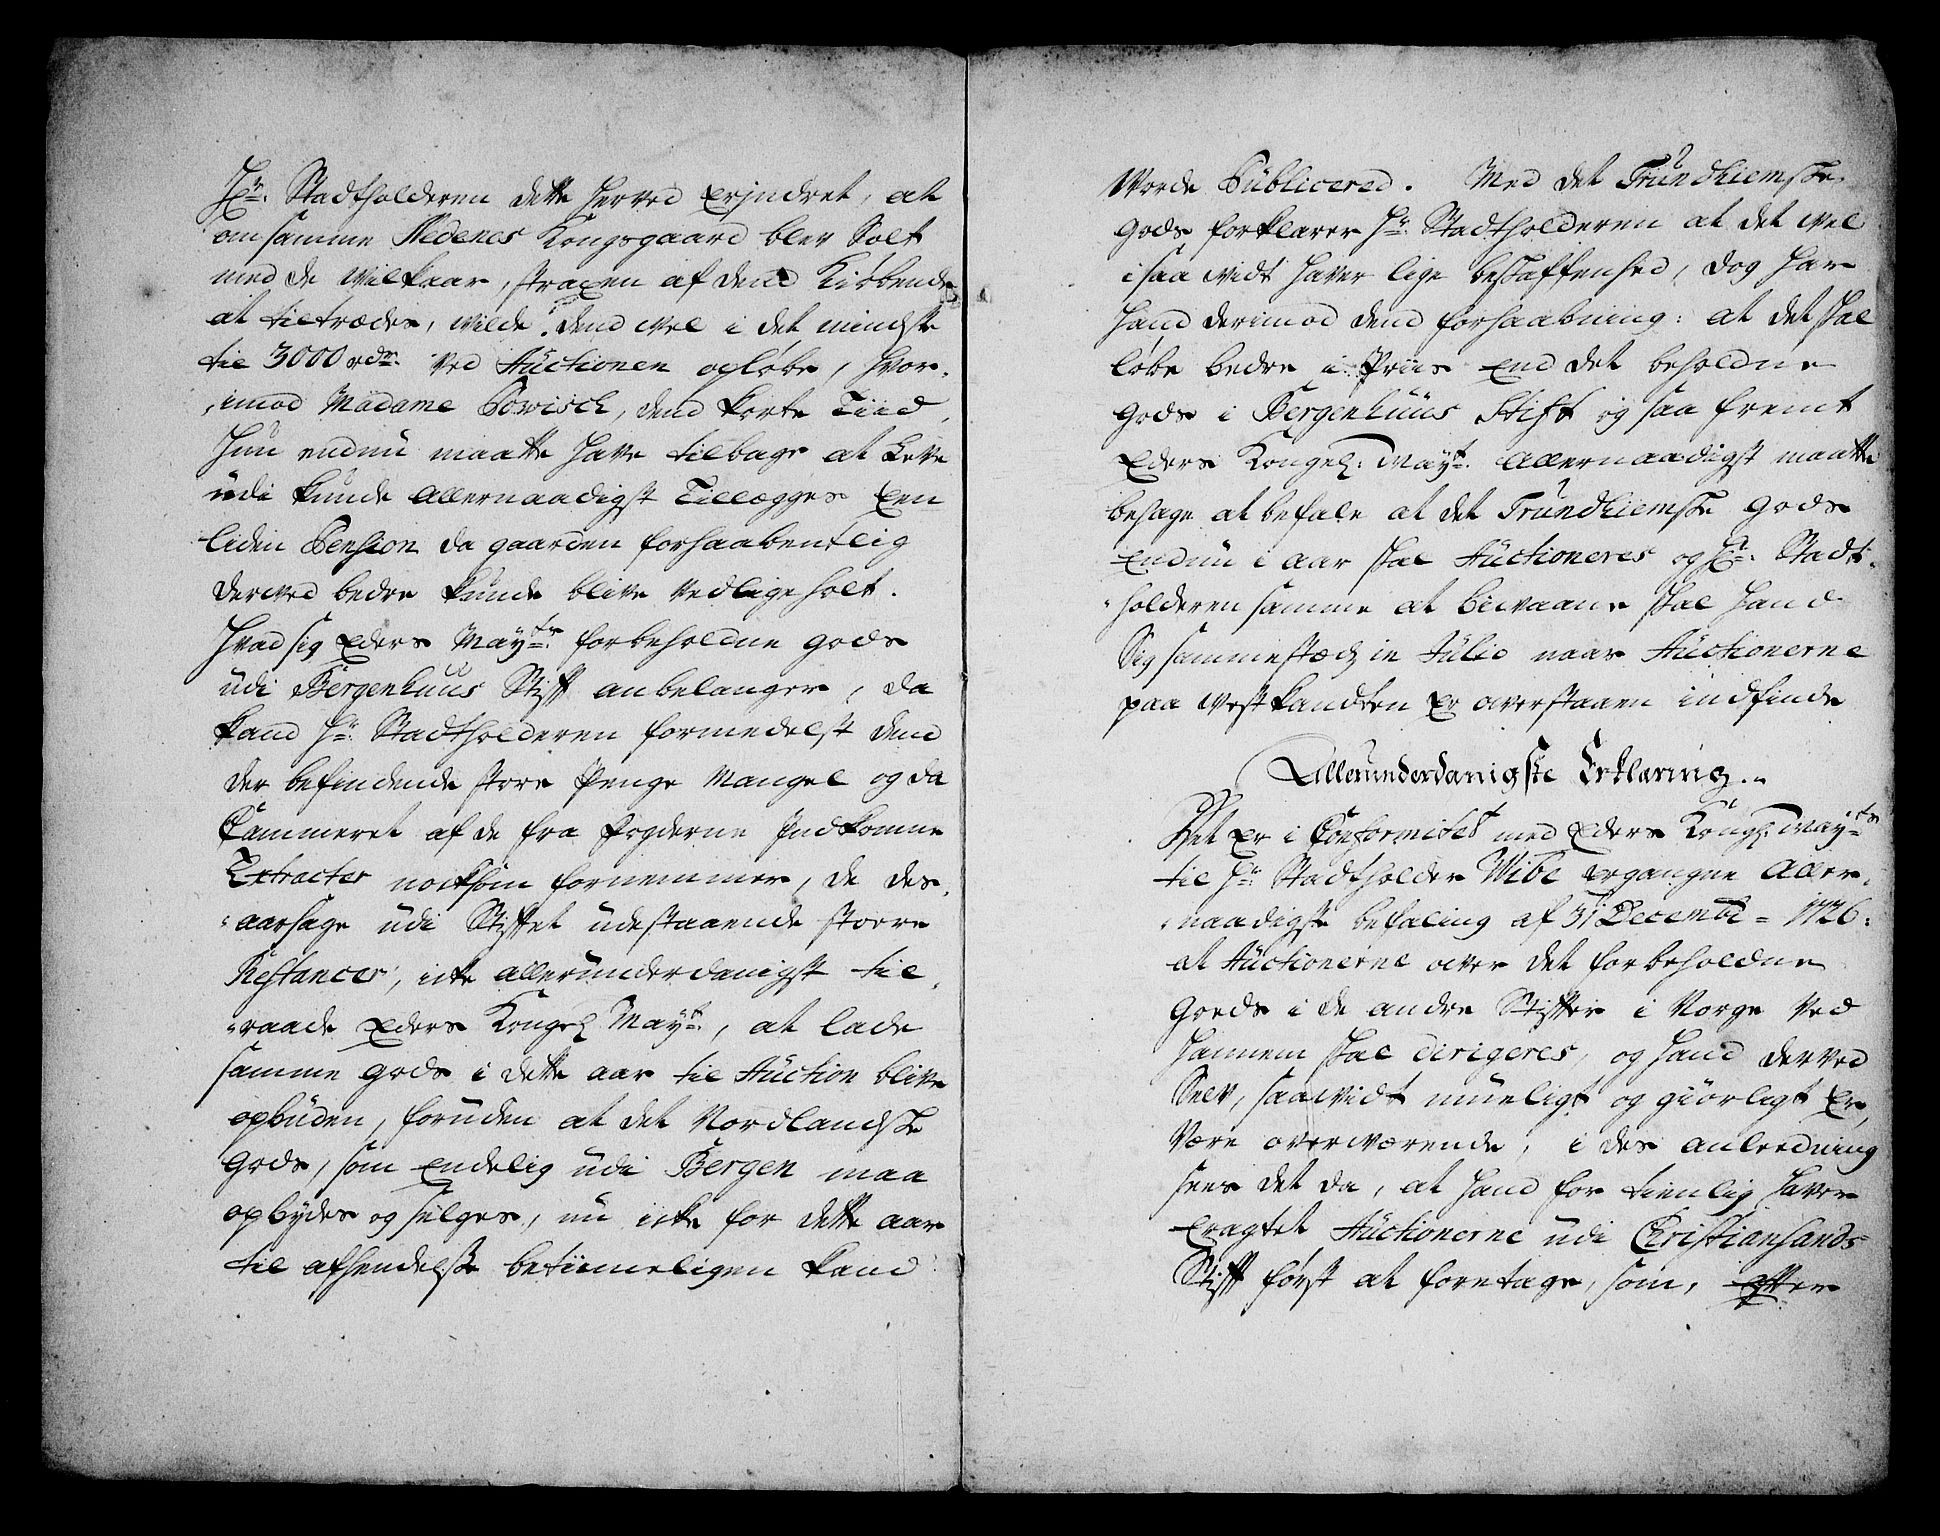 Hr. Stadtholderen dette herved Erjndret, at
om samme Nedenes Kongsgaard blev Solt
med de Vilkaar, straxen af dend Kiøbende
at tiltrædes, vilde dend vel i det mindste
til 3000 rdr. ved Auctionen opløbe, hvor-
imod Madame Powisch, dend korte Tiid,
hun endnu maatte have tilbage at Leve
udi kunde allernaadigst Tillegges Een
liden Pension da gaarden forhaabentlig
derved bedre kunde blive vedligeholt.
Hvad sig Eders Mayts. forbeholdne gods
udi Bergenhuus Stift anbelanger, da
kand Hr. Stadtholderen formedelst dend
der befindende store Penge Mangel og da
Cammeret af de fra Fogderne Indkomne
Extracter noksom fornemmer, de des-
aarsage udi Stiftet udestaaende store
Restancer, icke allerunderdanigst til-
raade Eders Kongel. Mayt., at lade
samme gods i dette aar til Auction blive
opbuden, foruden at det Nordlandske
Gods, som Endelig udi Bergen maa
opbydes og sælges, nu icke for dette aar
til afhendelse betiimeligen kand
Worde Publicered. Med det Trundhiemske
gods forklarer Hr. Stadtholderen at det vel
i saa vidt haver lige beskaffenhed, dog har
hand derimod dend forhaabning: at det skal
løbe bedre i Priis End det beholdne
gods i Bergenhuus Stift og saa fremt
Eders Kongel: Mayt. allernaadigst maatte
behage at befale at det Trundhiemske gods
Endnu i aar skal Auctioneres og Hr. Stadt-
holderen samme at bivaane skal hand
Sig sammestædz in Julio naar Auctionerne
paa Vestkandten Er overstaaen indfinde
Allerunderdanigste Erklæring.
Det Er i Conformitet med Eders Kongl. Mayts
til Hr. Stadtholder Wibe ergangne Aller-
naadigste befaling af 31 Decembr = 1726:
at Auctionerne over det forbeholdne
Goeds i de andre Stifter i Norge ved
hannem skal dirigeres, og hand derved
Selv, saavidt mueligt og giørligt Er,
være overværende, i des anledning
sees det da, at hand for tienlig haver
Eragtet Auctionerne udi Christiansands
Stift først at foretage, som, efter